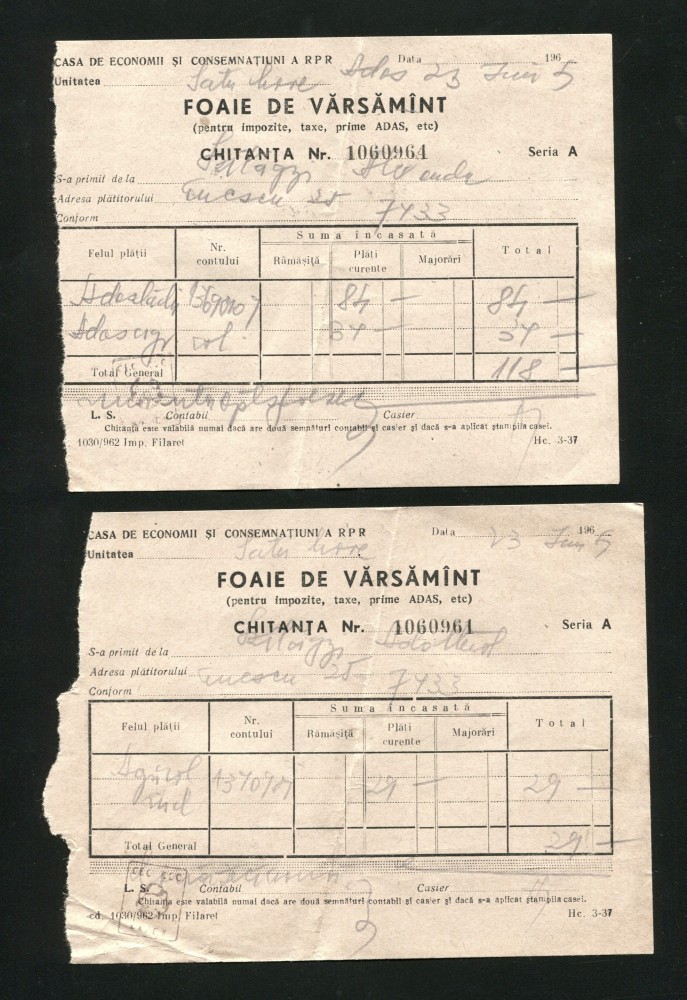 CASA DE ECONOMII ȘI CONSEMNAȚIUNI A RPR Data 23 Iuni 1965
Unitatea Satu Mare
FOAIE DE VĂRSĂMÎNT
(pentru impozite, taxe, prime ADAS, etc)
CHITANȚA Nr. 1060964 Seria A
S-a primit de la Szilagyi
Adresa plătitorului 25
Conform 7433
Suma încasată
Felul plății Nr. contului Rămășiță Plăți curente Majorări Total
84 — 84 —
34 — 34 —
Total General 118 —
L. S. Contabil Casier
Chitanța este valabilă numai dacă are două semnături contabil și casier și dacă s-a aplicat ștampila casei.
1030/962 Imp. Filaret Hc. 3-37
CASA DE ECONOMII ȘI CONSEMNAȚIUNI A RPR Data 23 Iuni 1965
Unitatea Satu Mare
FOAIE DE VĂRSĂMÎNT
(pentru impozite, taxe, prime ADAS, etc)
CHITANȚA Nr. 1060961 Seria A
S-a primit de la Szilagyi
Adresa plătitorului 25
Conform 7433
Suma încasată
Felul plății Nr. contului Rămășiță Plăți curente Majorări Total
29 — 29 —
Total General 29 —
L. S. Contabil Casier
Chitanța este valabilă numai dacă are două semnături contabil și casier și dacă s-a aplicat ștampila casei.
cd. 1030/962 Imp. Filaret Hc. 3-37